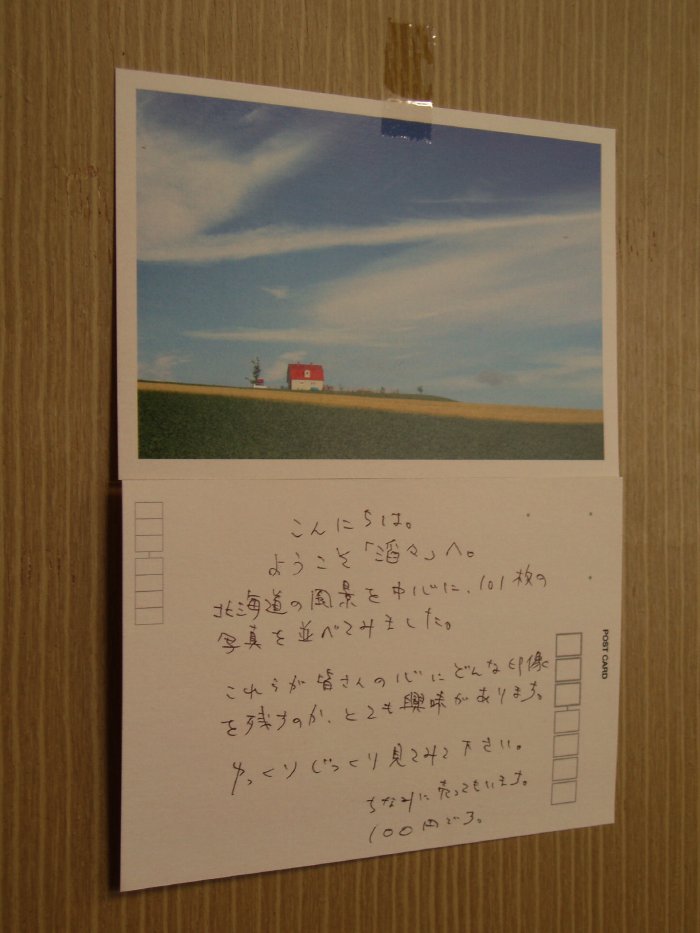 こんにちは。
ようこそ「滔々」へ。
北海道の風景を中心に、101枚の
写真を並べてみました。
これらが皆さんの心にどんな印象
を残すのか、とても興味があります。
ゆっくりじっくり見てみて下さい。
ちなみに売ってもいます。
100円です。
POST CARD